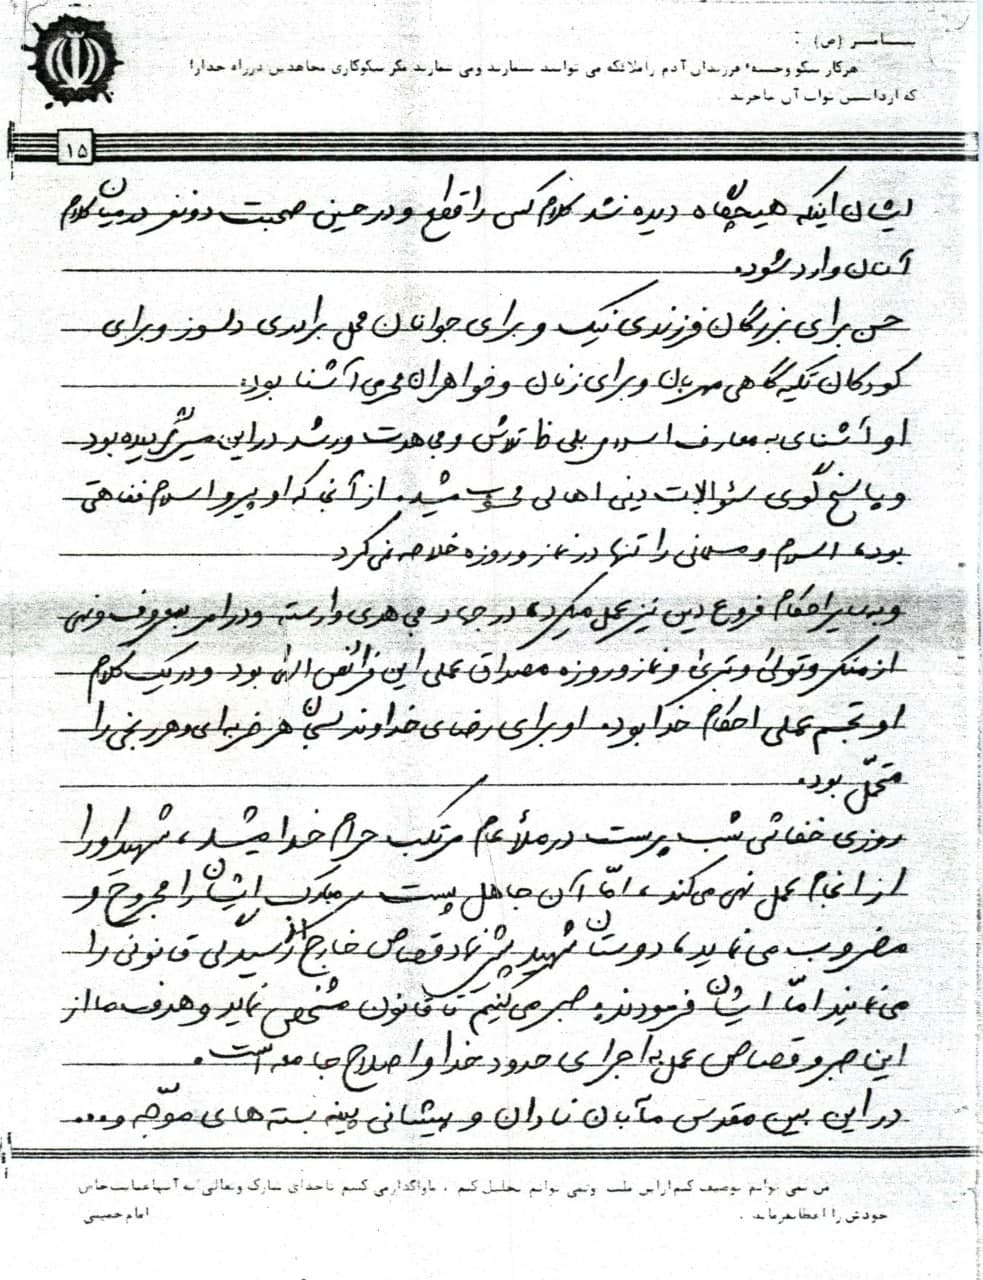 پیامبر (ص) :
هرکار نیکو وحسنهٔ فرزندان آدم را ملائکه می توانند بشمارند ومی شمارند مگر نیکوکاری مجاهدین درراه خدارا
که ازدانستن ثواب آن عاجزند .
۱۵
ایشان اینکه هیچگاه دیده نشد کلام کسی را قطع و در حین صحبت دو نفر در میان کلام
آنان وارد شود.
حسن برای بزرگان فرزندی نیک و برای جوانان محل برادری دلسوز و برای
کودکان تکیه گاهی مهربان و برای زنان و خواهران محرمی آشنا بود.
او آشنای به معارف اسلامی بلی تلاش و مجاهدت ورشد در این مسیر بود
و پاسخ گوی سئوالات دینی اهالی محسوب میشد. از آنجا که او پیرو اسلام فقاهتی
بود، اسلام و مسلمانی را تنها در نماز و روزه خلاصه نمی کرد
و به سایر احکام فروع دین نیز عمل میکرد، در جهاد مجاهدی وارسته و در امر بمعروف و نهی
از منکر و تولی و تبری و نماز و روزه مصداق عملی این فرائض الهی بود و در یک کلام
او تجسم عملی احکام خدا بود. او برای رضای خداوند هر ضربه ای و هر رنجی را
متحمّل بود.
روزی خفاشی شب پرست در ملأ عام مرتکب حرام خدا میشد، شهید او را
از انجام عمل نهی می کند، امّا آن جاهل پست سر مبارک ایشان را مجروح و
مضروب می نماید، دوستان شهید پیشنهاد قصاص خارج از رسیدگی قانونی را
می نمایند امّا ایشان فرمودند: صبر می کنیم تا قانون مشخص نماید و هدف ما از
این صبر و قصاص عمل به اجرای حدود خدا و اصلاح جامعه است.
در این بین مقدس مآبان نادان و پیشانی پینه بسته های موجّه و...
من نمی توانم توصیف کنم ازاین ملت ونمی توانم تجلیل کنم . ماواگذارمی کنیم تاخدای تبارک وتعالی به آنهاعنایت خاص
خودش را اعطا بفرماید .
امام خمینی